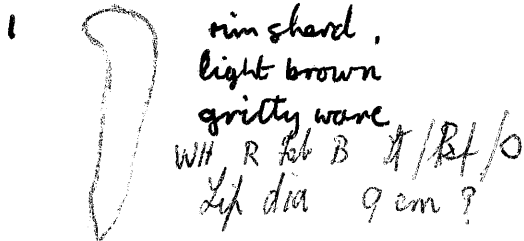 1 rim sherd,
light brown
gritty ware
WH R Fab B
Lip dia 9 cm ?